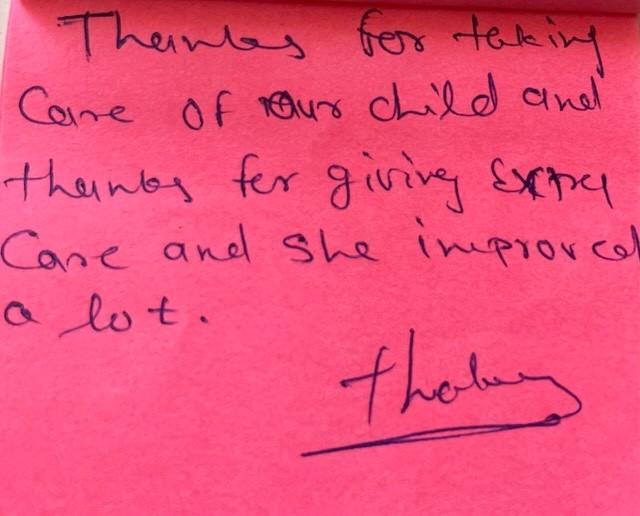 Thanks for taking
Care of our child and
thanks for giving Extra
Care and she improved
a lot.